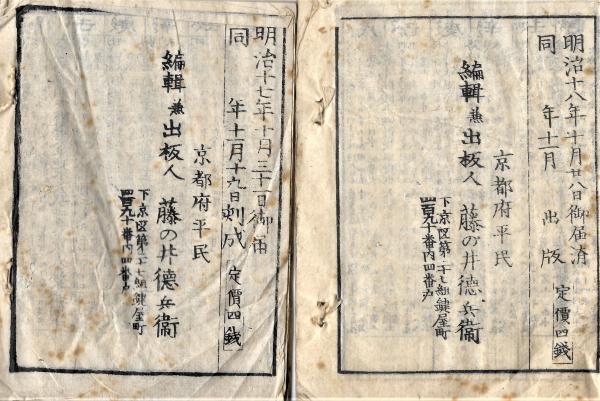 明治十七年十月三十一日御届
同 年十一月十九日刻成 定價四錢
京都府平民
編輯兼出板人 藤の井德兵衞
下京区第二十七組鍵屋町
四百九十番内四番戸
明治十八年十月廿八日御届済
同 年十一月 出版 定價四錢
京都府平民
編輯兼出板人 藤の井德兵衞
下京区第二十七組鍵屋町
四百九十番内四番戸